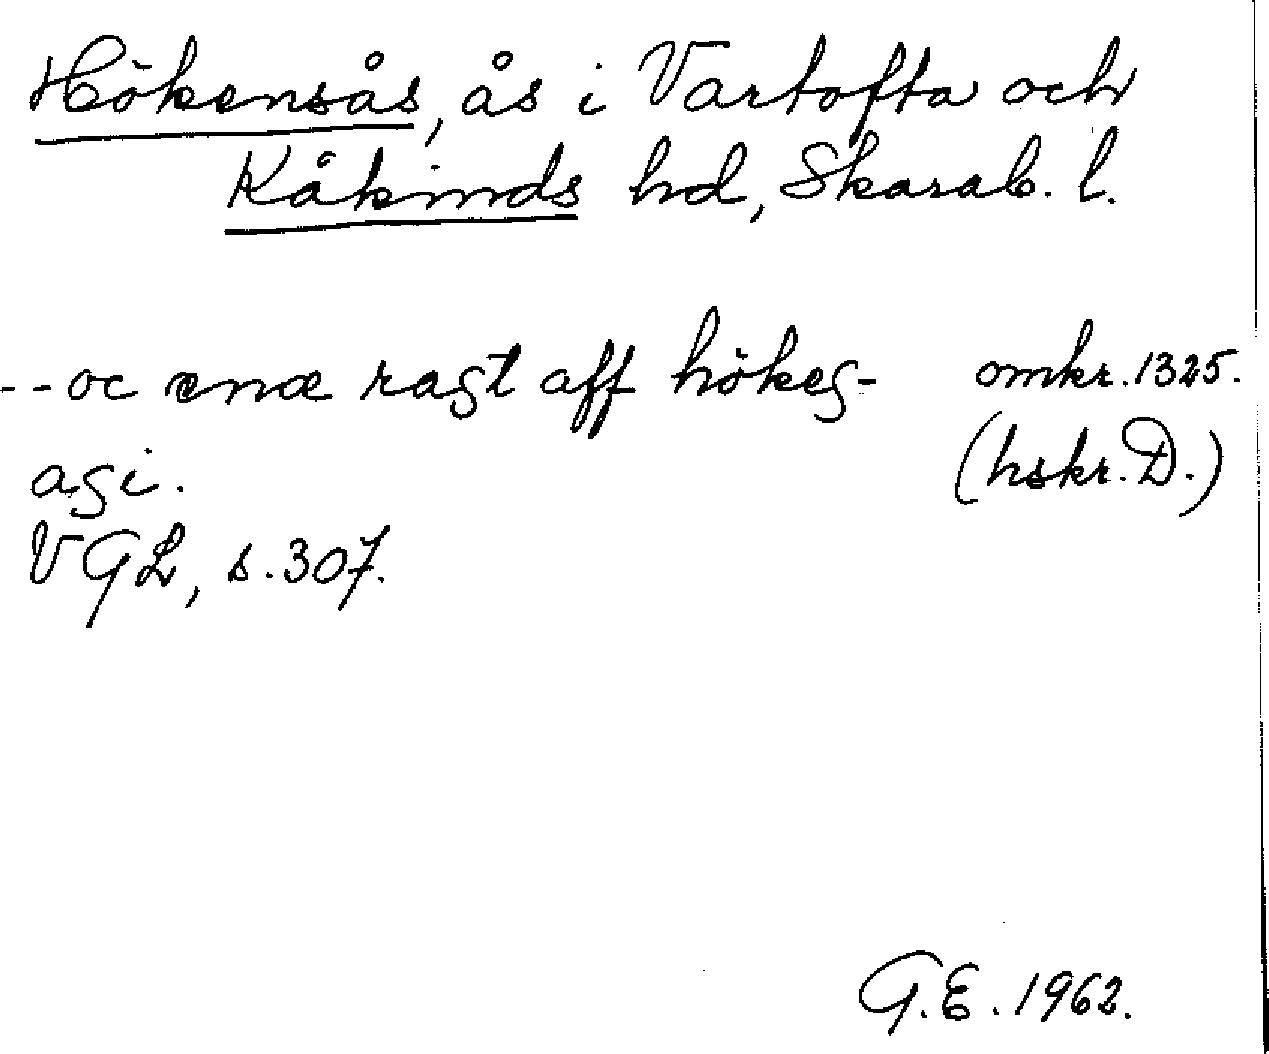 Hökensås, ås i Vartofta och
Kåkinds hd, Skarab. l.
--oc ena ragt aff hökeg- omkr. 1325.
agi. (hskr. D.)
VGL, s. 307.
G.E. 1962.